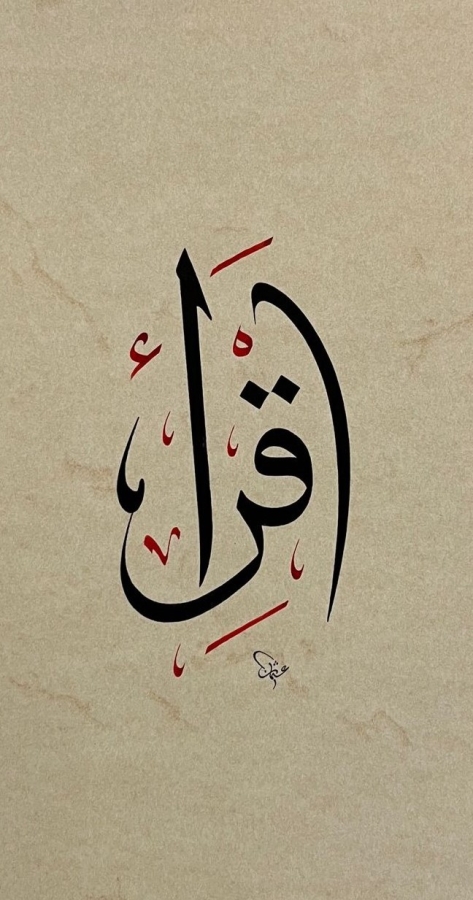 اِقْرَأ